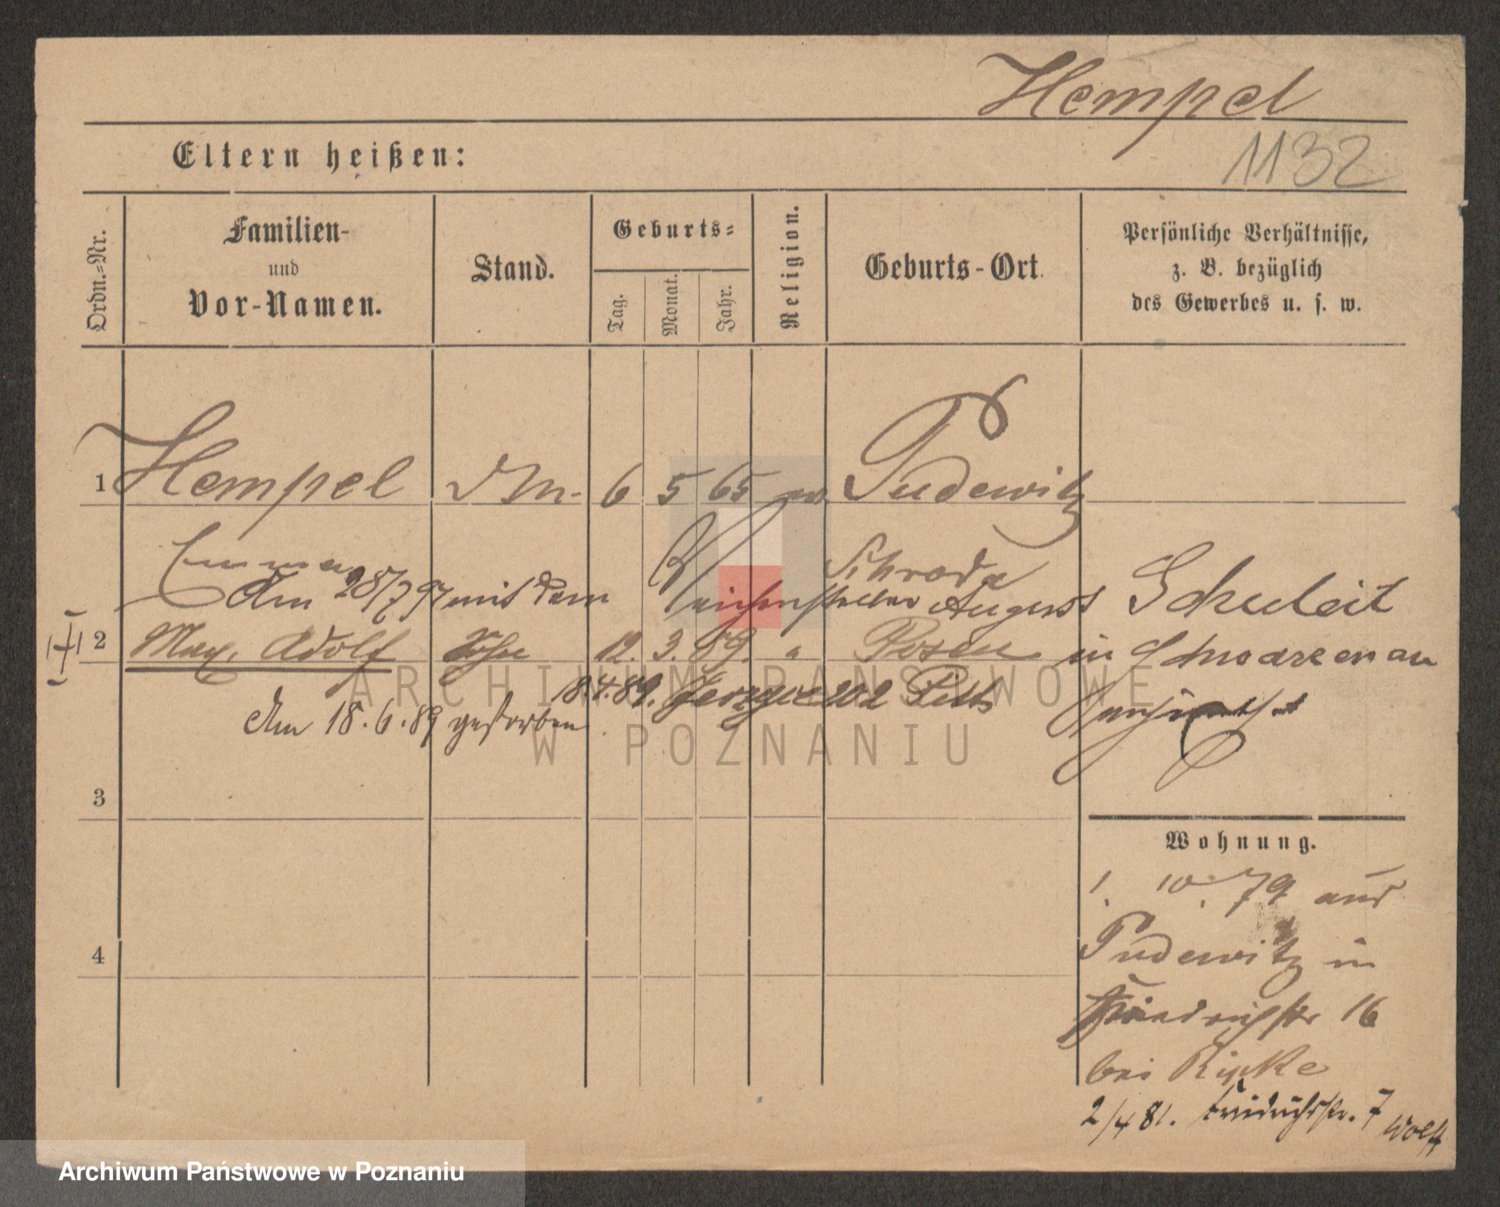 Hempel
1132
Eltern heißen:
Ordn.=Nr.
Familien-
und
Vor-Namen.
Stand.
Geburts=
Tag.
Monat.
Jahr.
Religion.
Geburts-Ort.
Persönliche Verhältnisse,
z. B. bezüglich
des Gewerbes u. s. w.
1 Hempel 6 5 65 Pudewitz
Emma Schroda
Am 28/7 97 mit dem August Schuleit
2 Max, Adolf Sohn 12. 3. 89. " Posen in Schwarzenau
18.4.89. Jerzyce 202
Am 18.6.89 gestorben
3
Wohnung.
1. 10. 79 aus
Pudewitz in
4
Friedrichstr 16
bei Ripke
2/4 81. Friedrichstr. 7 Wolff
ARCHIWUM PAŃSTWOWE
W POZNANIU
Archiwum Państwowe w Poznaniu